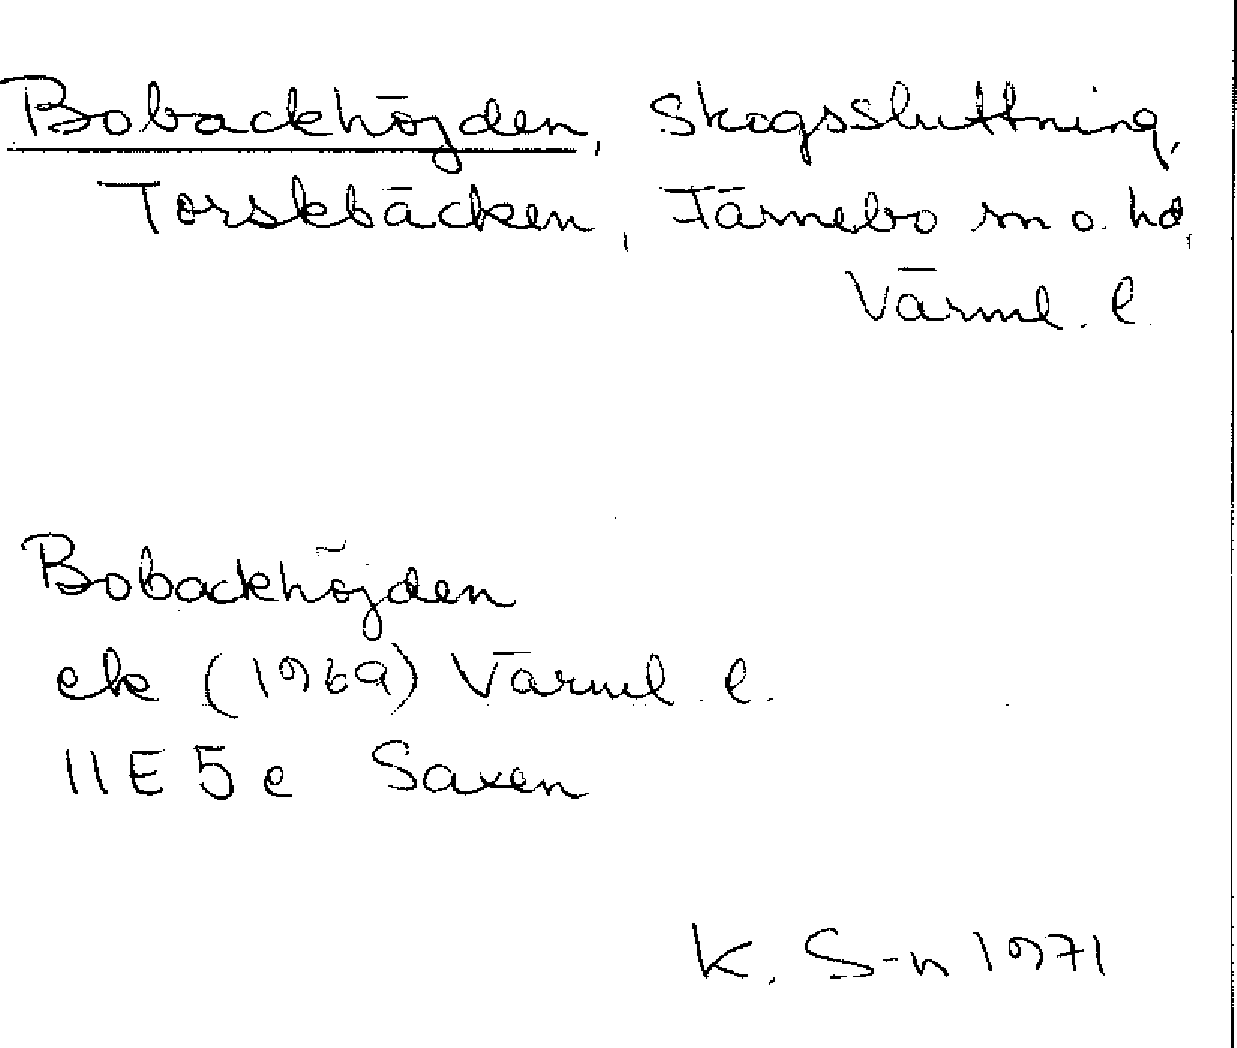 Bobackhöjden, Skogssluttning,
Torskbäcken, Färnebo sn o. hd,
Värml. l.
Bobackhöjden
ek (1969) Värml. l.
11E 5e Saxen
K. S-n 1971